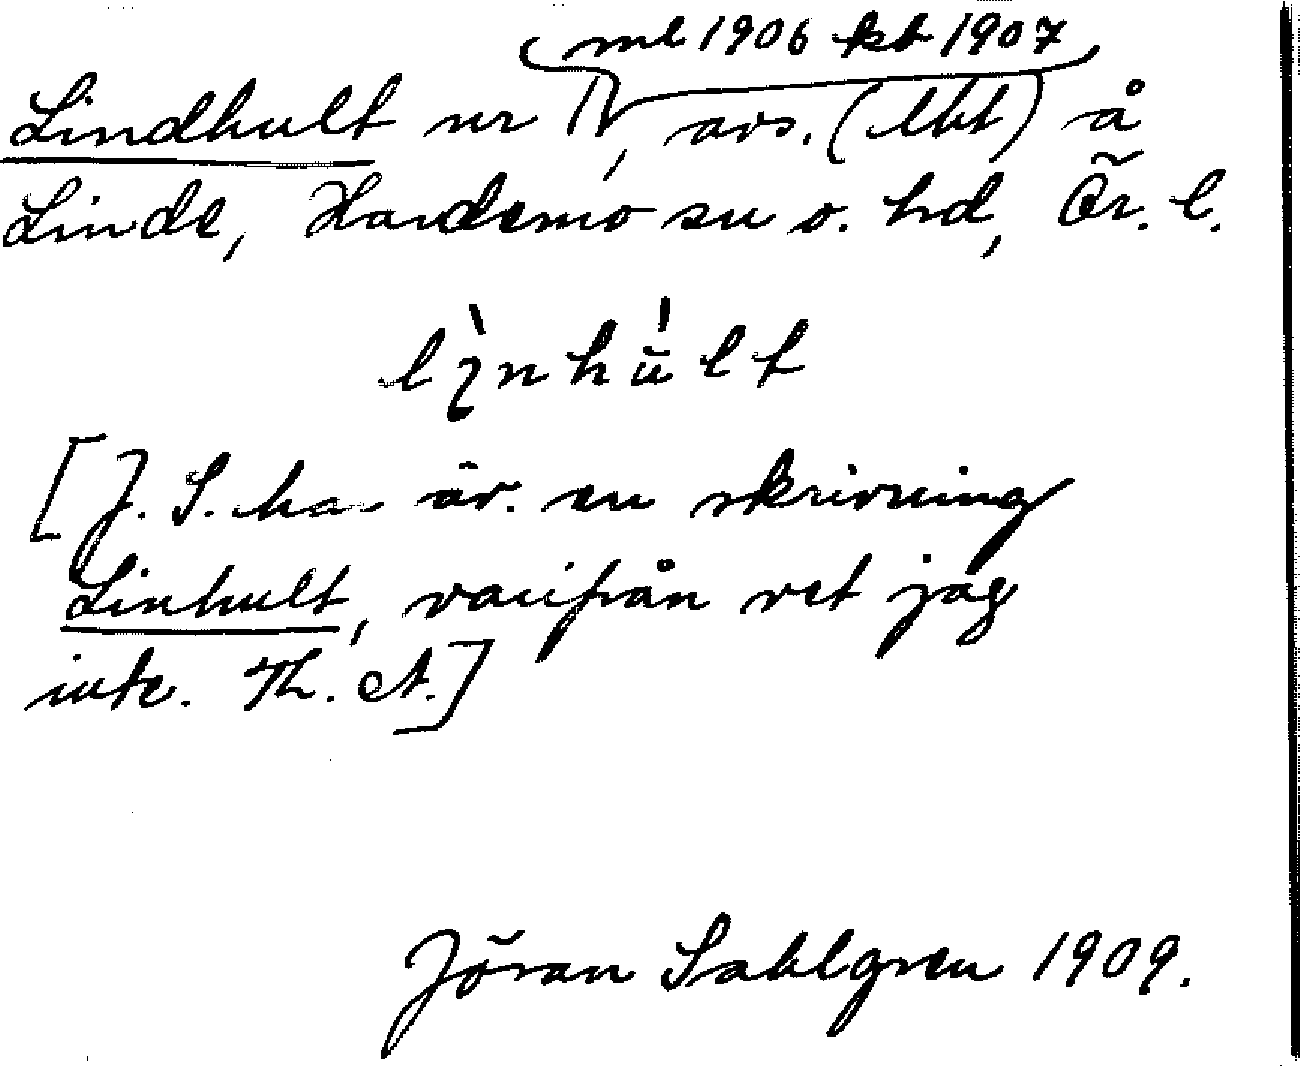 ml 1906 kbt 1907
Lindhult nr IV, avs. (lht) å
Linde, Hardemo sn o. hd, Ör. l.
lìnhu̇lt
[J. S. har äv. en skrivning
Linhult, varifrån vet jag
inte. Th. A.]
Jöran Sahlgren 1909.